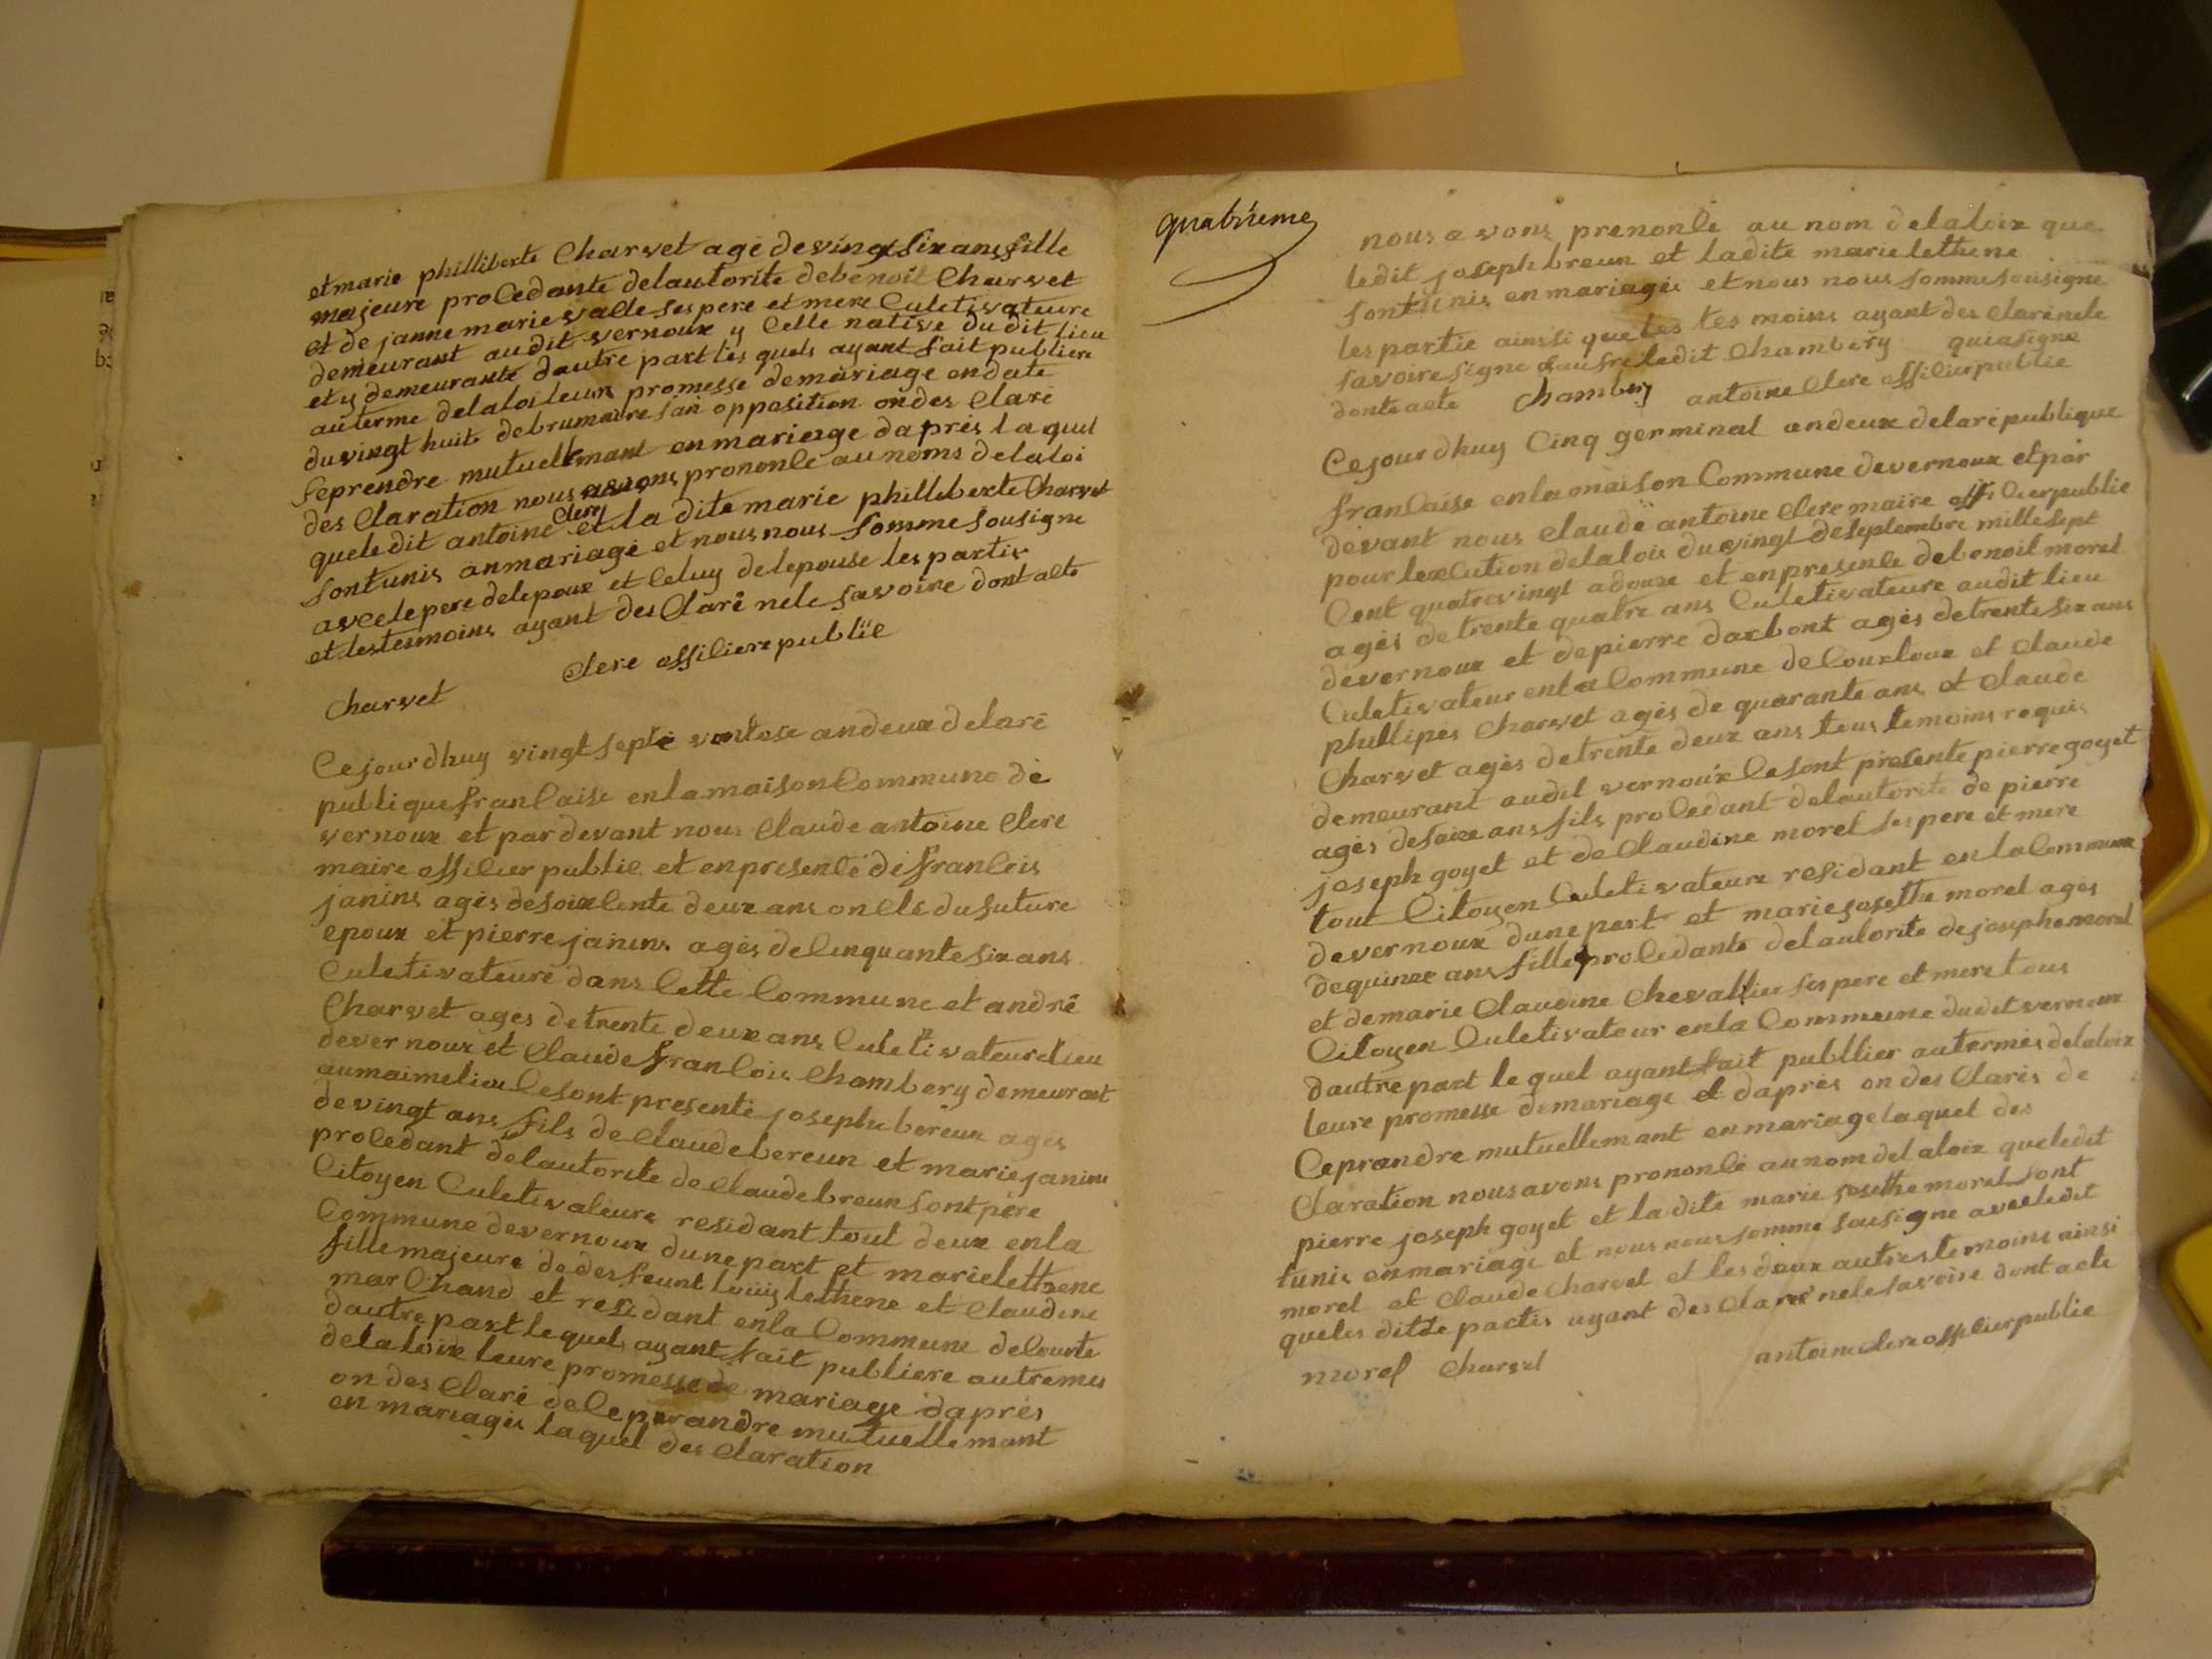 et marie philliberte Charvet agé de vingt six ans fille
majeure procedante delautorite debenoit Charvet
et de janne marie valle ses pere et mere Culetivateure
demeurant audit vernoux y Celle native dudit lieu
et y demeurante dautre part lés quels ayant fait publiere
auterme delaloi leurs promesse demariage endate
duvingt huit debrumaire san opposition ondes Claré
seprendre mutuellemant enmariage daprés laquel
des Claration nous avons prononcé aunoms delaloi
queledit antoine Clere et la dite marie philleberte Charvet
sontunis anmariagé et nous nous somme sousigne
avec le pere delepoux et Celuy delepouse les partis
et les tesmoins ayant des Claré nele savoire dont acte
Clere officiere publie
Charvet
Cejourdhuy vingt septe ventose andeux delaré
publique francaise enlamaison Commune dé
vernoux et par devant nous Claude antoine Clere
maire officier publie et enpresence de francois
janins agés desoixcente deux ans oncle dufuture
epoux et pierre janins agés decinquante six ans
Culetivateure dans Cette Commune et andré
Charvet agés detrente deux ans Culetivateuredlieu
devernoux et Claude francois Chambery demeurant
aumaimelieu Cesont presenté josephe bereun agés
devingt ans fils de Claude bereun et marie janins
procedant delautorité de Claude breun sont pére
Citoyen Culetivateure residant tout deux enla
Commune devernoux dunepart et marielethene
fillemajeure dedesfeunt louis lethene et Claudine
marChand et residant enla Commune deCourte
dautre part lequel ayant fait publiere autremes
delaloix leure promesse de mariage daprés
on des Claré deceprandre mutuellemant
en mariagés laquel des Claration
quatrieme
nous avons prenoncé au nom delaloix que
ledit joseph breun et ladite marielethene
sontunis enmariagés et nous nous sommesousigne
les partie ainssi que les tesmoins ayant des Clarénele
savoiresigne saufreledit Chambéry quiasigne
dontacte Chambery antoine Clere officierpublie
Cejourdhuy Cinq germinal andeux delarépublique
francaise enlamaison Commune devernoux et par
devant nous Claude antoine Clere maire officierpublie
pour lexcution delalois duvingt deseptembre millesept
Cent quatrevingt adouze et enpresence debenoit morel
agés detrente quatre ans Culetivateure audit lieu
devernoux et depierre darbont agés detrentesix ans
Culetivateur enla Commune deCourtoux et Claude
phillipés Charvet agés de quarante ans et Claude
Charvet agés detrente deux ans tous temoins requis
demeurant audit vernoux Cesont présente pierre goyet
agés desaize ans fils procedant delautorite de pierre
joseph goyet et de Claudine morel ses pere et mere
tout Citoyen Culetivateure residant enlaCommune
devernoux dunepart et mariejosethe morel agés
dequinze ans fille procedante delautorite dejosephemorel
et demarie Claudine Chevallier ses pere et mere tous
Citoyen Culetivateur enla Commune dudit vernoux
dautre part lequel ayant fait publlier autermés delaloix
leure promesse demariage et daprés on des Clarés de
Ceprandre mutuellemant en mariagelaquel des
Claration nousavons prononcé aunomdelaloix queledit
pierre joseph goyet et ladite marie josethe morel sont
tunis enmariagé et nous nous somme sousigne avecledit
morel et Claude Charvet et les deux autres temoins ainsi
queles ditte partis ayant des Claré nelesavoire dont acte
morel Charvet antoine Clere officierpublie